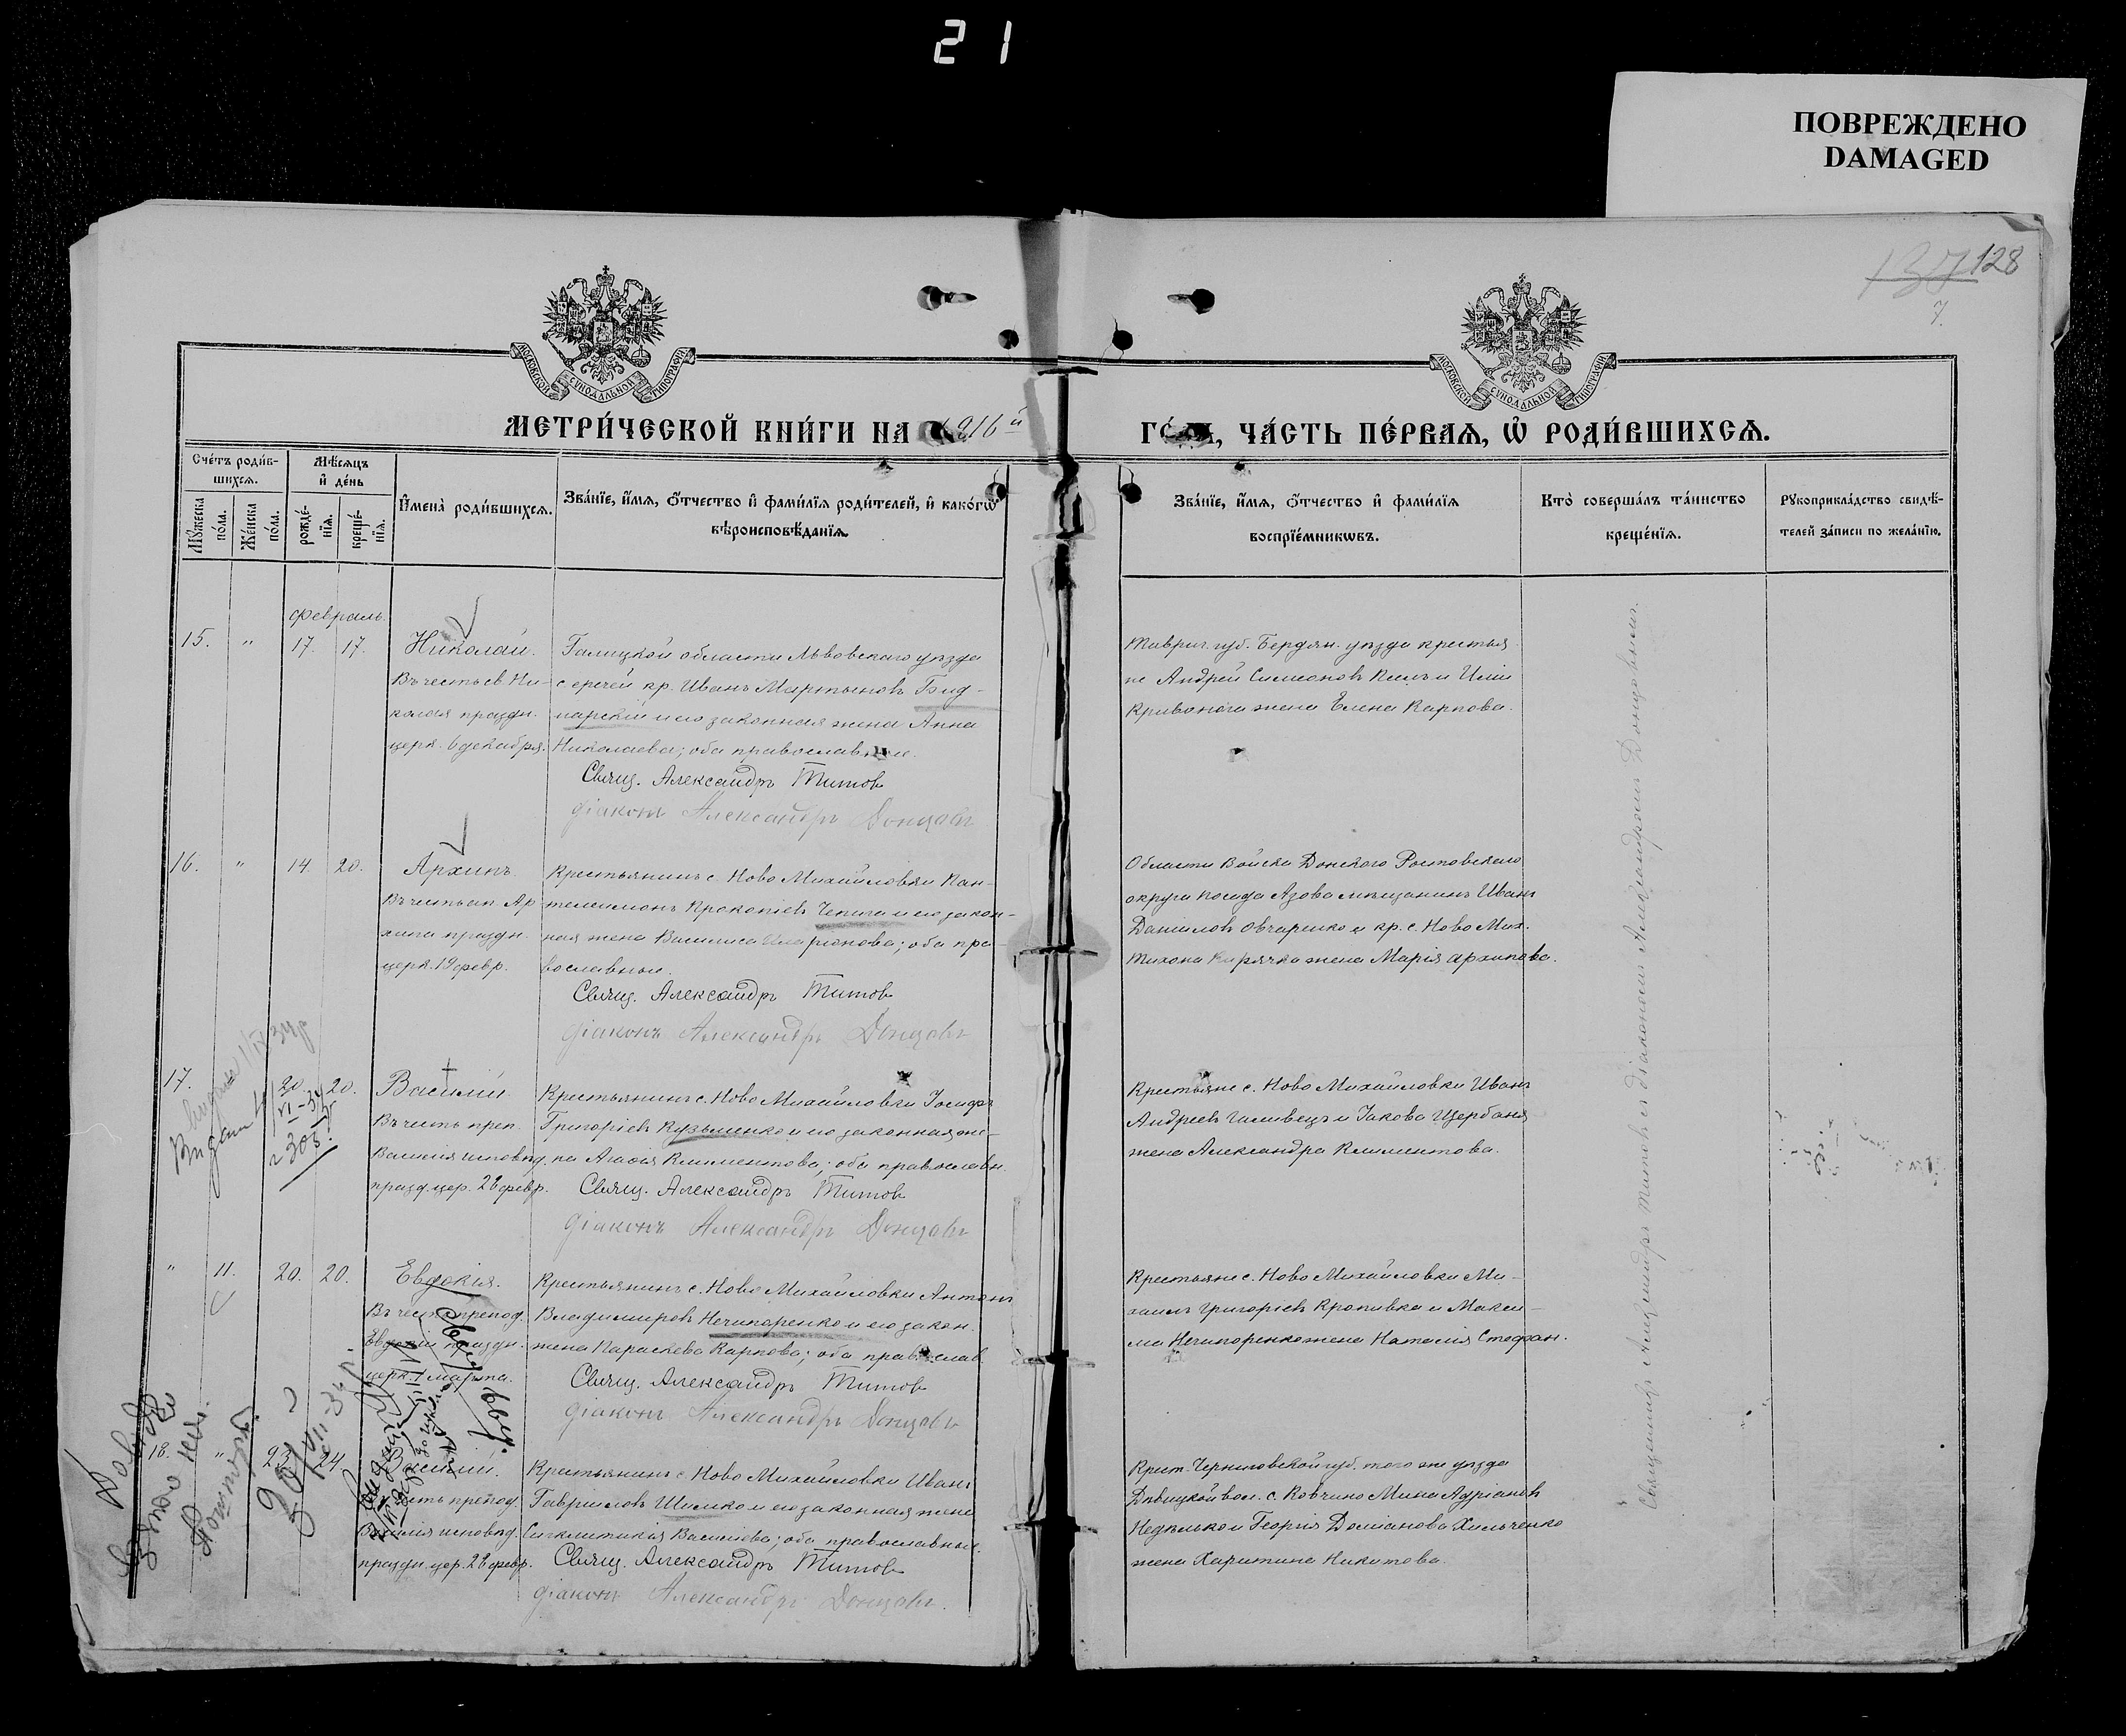 21
ПОВРЕЖДЕНО
DAMAGED
128
7.
МОСКОВСКОЙ СУНОДАЛЬНОЙ ТИПОГРАФІИ
МОСКОВСКОЙ СУНОДАЛЬНОЙ ТИПОГРАФІИ
МЕТРИ́ЧЕСКОЙ КНИ́ГИ НА 1916 й
ГО́ДЪ, ЧА́СТЬ ПЕ́РВАѦ, Ѡ҆ РОДИ́ВШИХСѦ.
Сче́тъ роди́в-
шихсѧ.
Мѣ́сѧцъ
и҆ де́нь
Мꙋ́жеска
по́ла.
Же́нска
по́ла.
рожде́-
нїѧ.
креще́-
нїѧ.
И҆мена̀ роди́вшихсѧ.
Зва́нїе, и҆́мѧ, ѻ҆́тчество и҆ фами́лїѧ роди́телей, и҆ како́гѡ
вѣроисповѣ́данїѧ.
Зва́нїе, и҆́мѧ, ѻ҆́тчество и҆ фами́лїѧ
воспрїе́мникѡвъ.
Кто̀ соверша́лъ та́инство
креще́нїѧ.
Рꙋкоприкла́дство свидѣ́-
телей за́писи по жела́нїю.
Февраль.
15. " 17. 17. Николай.
Въ честь св. Ни-
колая праздн.
церк. 6 декабря.
Галицкой области Львовскаго уѣзда
кр. Иванъ Мартыновъ
и его законная жена Анна
Николаева; оба православные.
Свящ. Александръ Титовъ
діаконъ Александръ Донцовъ
Таврич. губ. Бердян. уѣзда крестья
не Андрей Симеоновъ и
жена Елена Карпова.
16. " 14. 20. Архипъ.
Въ честь ап. Ар
хипа праздн.
церк. 19 февр.
Крестьянинъ с. Ново Михайловки Пан-
телеимонъ Прокопіевъ Чепига и его закон-
ная жена Василиса Иларіонова; оба пра-
вославные.
Свящ. Александръ Титовъ
діаконъ Александръ Донцовъ
Области Войска Донского Ростовского
округа посада Азова мѣщанинъ Иванъ
Даніиловъ Овчаренко и кр. с. Ново Мих.
Тихона жена Марія Архипова.
17. 20. 20. Василій.
Въ честь преп.
Василія исповѣд.
празд. цер. 28 февр.
Крестьянинъ с. Ново Михайловки Іосифъ
Григоріевъ Кузьменко и его законная же-
на Агафія Климентова; оба православн.
Свящ. Александръ Титовъ
діаконъ Александръ Донцовъ
Крестьяне с. Ново Михайловки Иванъ
Андреевъ и Іакова Щербаня
жена Александра Климентова.
" 11. 20. 20. Евдокія.
Въ честь препод.
Евдокіи праздн.
церк. 1 марта.
Крестьянинъ с. Ново Михайловки Антонъ
Владимировъ Нечипоренко и его закон.
жена Параскева Карпова; оба православ.
Свящ. Александръ Титовъ
діаконъ Александръ Донцовъ
Крестьяне с. Ново Михайловки Ми-
хаилъ Григоріевъ Кропивка и Макси-
ма Нечипоренко жена Наталія Стефан.
18. " 23. 24. Василій.
честь препод.
Василія исповѣд.
праздн. цер. 28 февр.
Крестьянинъ с. Ново Михайловки Иванъ
Гавріиловъ Шимко и его законная жена
Синклитикія Василіева; оба православные.
Свящ. Александръ Титовъ
діаконъ Александръ Донцовъ.
Крест. Черниговской губ. того же уѣзда
вол. с. Ковчино Мина Адріановъ
Недѣлько и Георгія Доміанова Хильченко
жена Харитина Никитова.
Священникъ Александръ Титовъ съ діакономъ Александромъ Донцовымъ.